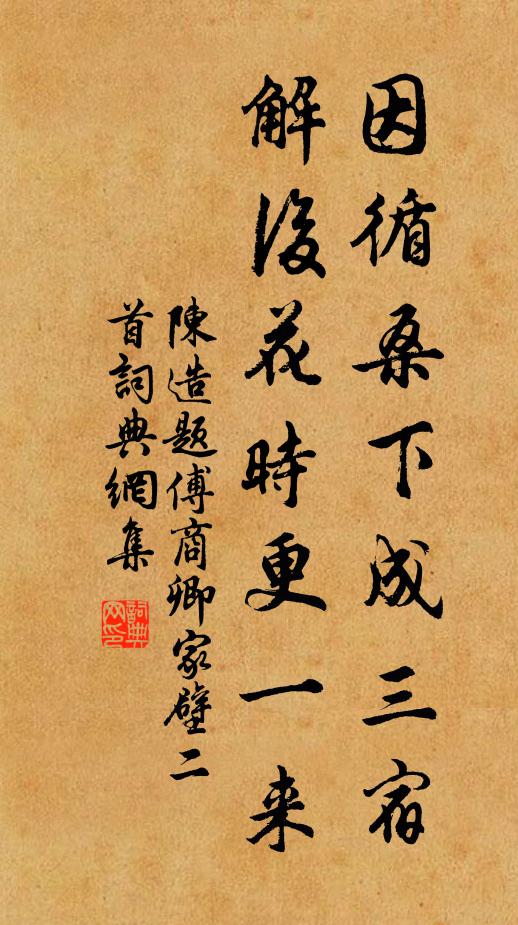 因循桑下成三宿
解後花時更一来
陳造題傅商卿家壁二
首詞典網集
詞典
网印